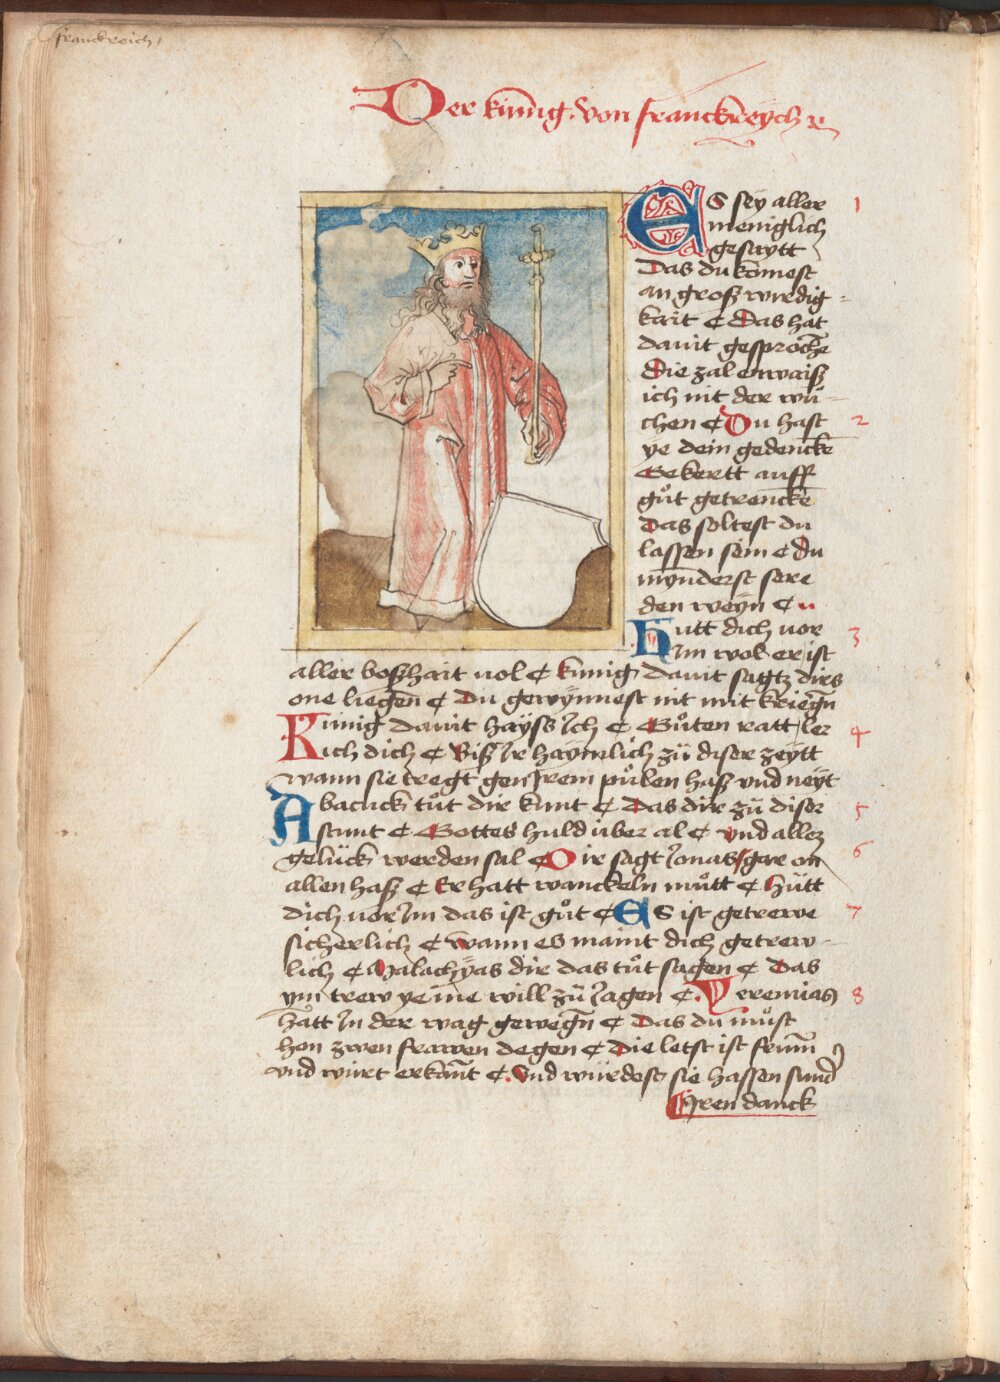 franckreich
Der künig von franckreÿch
ES seÿ aller 1
meniglich
gesaytt
Das du komest
an groß wirdig
kait ¢ Das hat
dauit gesproche
Die zal enwaiß
ich nit der wu
chen ¢ Du hast 2
ye dein gedencke
Bekertt auff
gůt getrencke
Das soltest du
lassen sein ¢ du
mÿnderst sere
den weÿn ¢
Hutt dich uor 3
Im wol er ist
aller boßhait uol ¢ künig dauit sagtz dirs
one liegen ¢ Du gewÿnnest nit mit kriegn
Künig dauit haÿss Ich ¢ Gůten ratt ler 4
ich dich ¢ Biß Ir haÿmlich zů diser zeÿtt
wann sie tregt gen Irem půlen haß vnd neÿt
Abacuck tůt dir kunt ¢ Das dir zů diser 5
stunt ¢ Gottes huld über al ¢ vnd allez
gelück werden sal ¢ Dir sagt Jonas gar on 6
allen haß ¢ Er hatt wanckeln můtt ¢ Hütt
dich uor Im das ist gůt ¢ ES ist getrewe 7
sicherlich ¢ wann es maint dich getrew
lich ¢ Malachÿas dir das tůt sagen ¢ Das
ÿm trew ÿe me will zů Jagen ¢ Jeremias 8
hatt In der wag gewegn ¢ Das du můst
hon zwen frawen degen ¢ Die letst ist frum
vnd würt erkant ¢ vnd würdest sie hassen sund
Iren danck